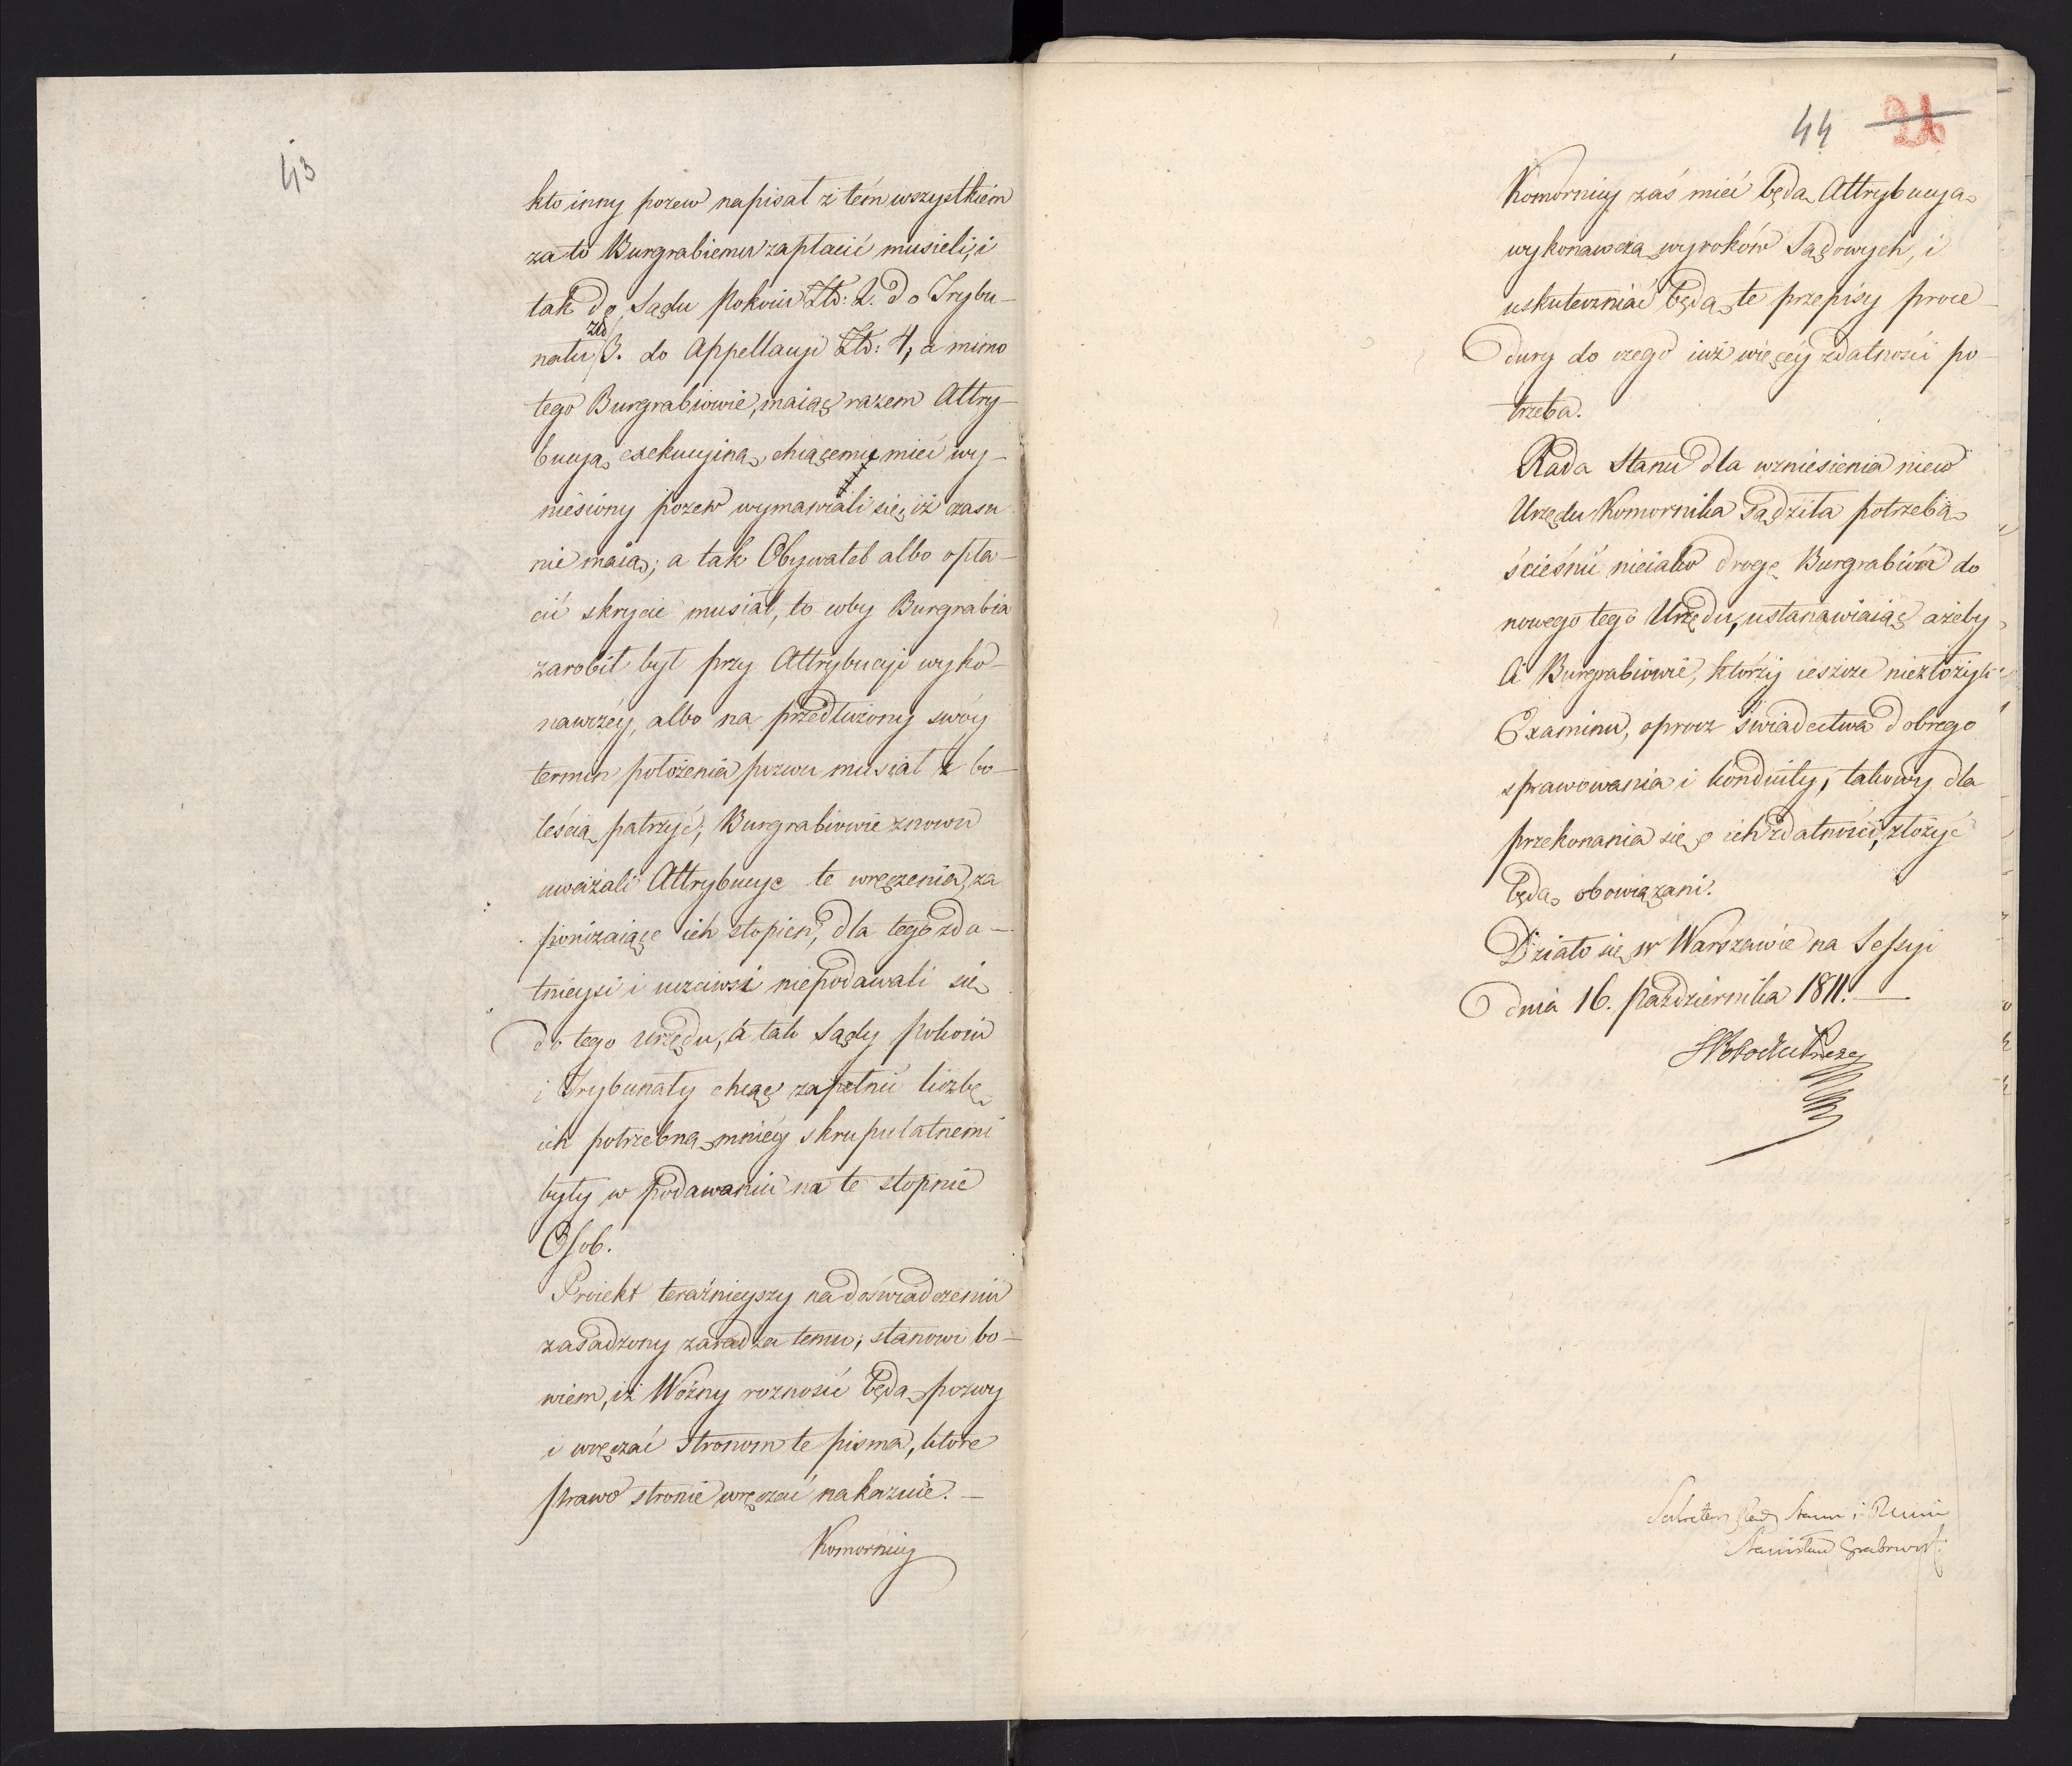 43
kto inny pozew napisał z tém wszystkiém
za to Burgrabiemu zapłacić musieli, i
tak do Sądu Pokoiu Złt: 2. do Trybu-
złt
nału 3. do Appellacyi Złt: 4, a mimo
tego Burgrabiowie, maiąc razem Attry-
bucyą exekucyiną chcącemu mieć wy-
niesiony pozew wymawiali się, iż czasu
nie maią; a tak Obywatel albo opła-
cić skrycie musiał, to coby Burgrabia
zarobił był przy Attrybucyi wyko-
nawczéy, albo na przedłużony swóy
termin położenia pozwu musiał z bo-
leścią patrzyć; Burgrabiowie znowu
uważali Attrybucye te wręczenia, za
poniżaiące ich stopień, dla tego zda-
tnieysi i uczciwsi niepodawali się
do tego urzędu, á tak Sądy Pokoiu
i Trybunały chcąc zapełnić liczbę
ich potrzebną mniéy skrupulatnemi
były w podawaniu na te stopnie
Osob.
Proiekt teraźnieyszy na doświadczeniu
zasadzony zaradza temu; stanowi bo-
wiem, iż Woźny roznosić będą pozwy
i wręczać Stronom te pisma, które
prawo stronie wręczać nakazuie. -
Komornicy
44 26
Komornicy zaś mieć będą Attrybucyą
wykonawczą wyroków Sądowych, i
uskuteczniać będą te przepisy proce-
dury do czego iuż więcéy zdatności po-
trzeba.
Rada Stanu dla wzniesienia nieco
Urzędu Komornika Sądziła potrzebą
ścieśnić nieiako drogę Burgrabiów do
nowego tego Urzędu, ustanawiaiąc ażeby
Ci Burgrabiowie, którzy ieszcze niezłożyli
Examinu, oprocz świadectwa dobrego
sprawowania i konduity, takowy dla
przekonania się o ich zdatności, złożyć
będą obowiązani.
Działo się w Warszawie na Sessyi
dnia 16. Października 1811. -
Sekretarz Rady Stanu i
Stanisław Grabowski